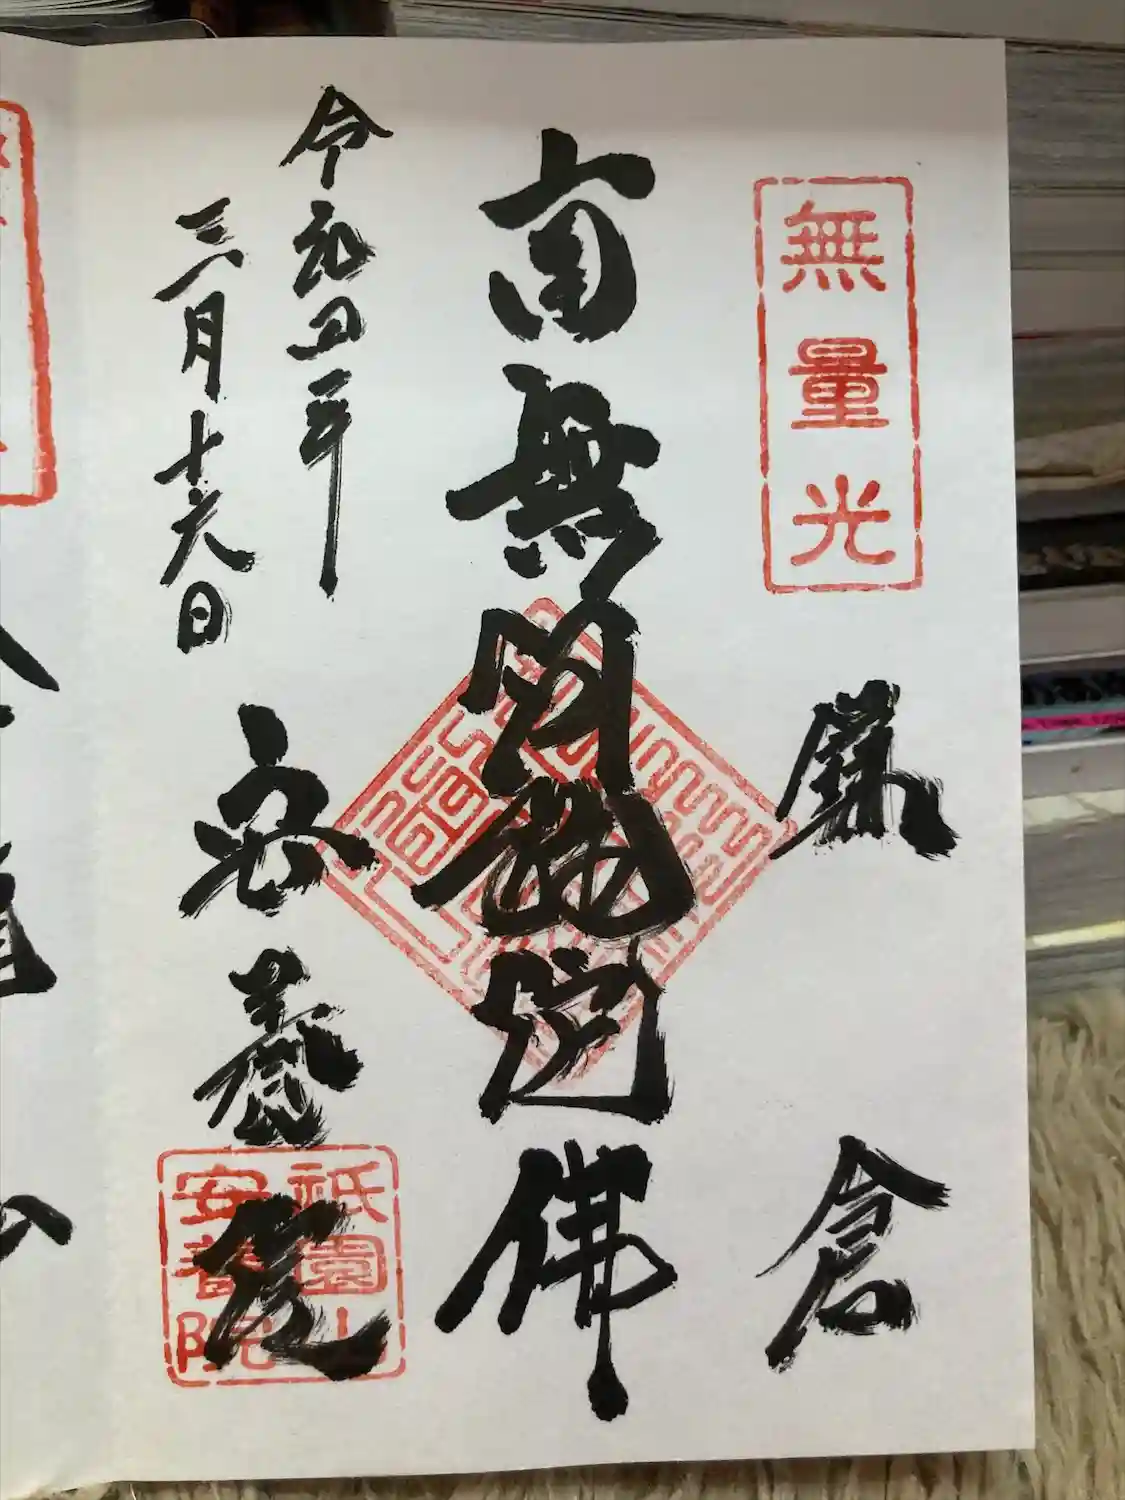 無量光
鎌倉
南無阿弥陀佛
令和五年
三月十六日
安養院
祇園山
安養院